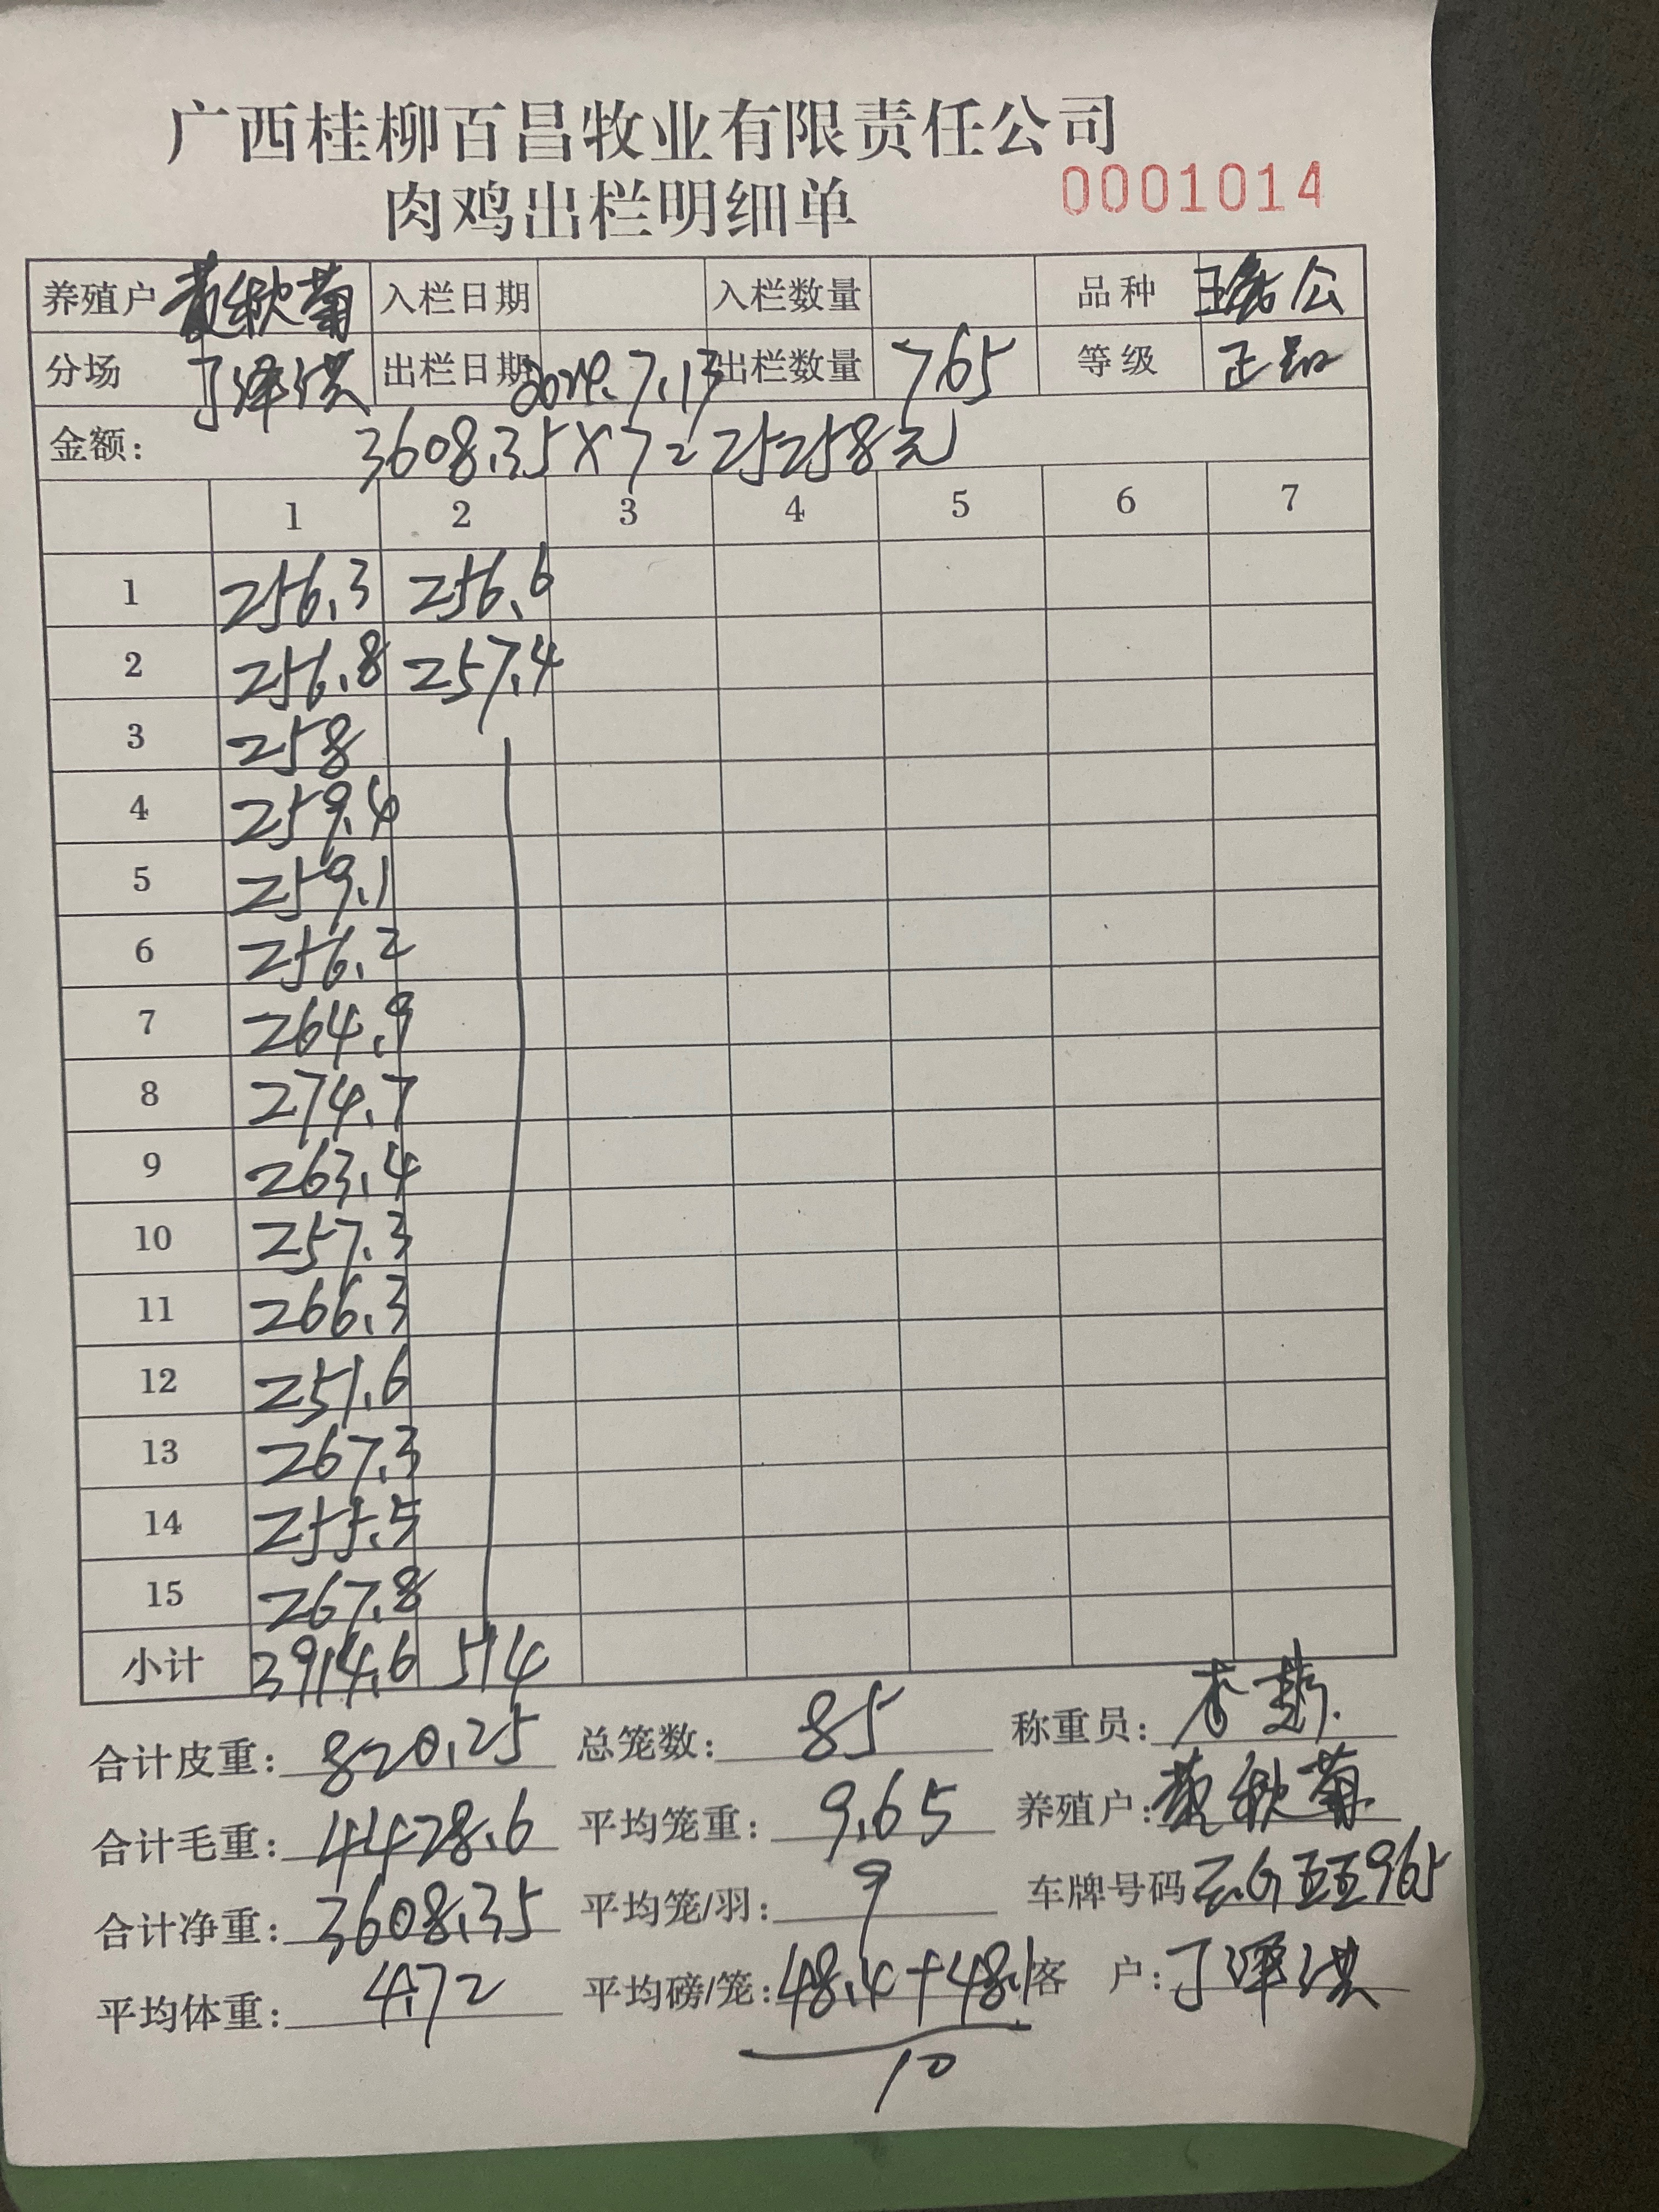 广西桂柳百昌牧业有限责任公司
肉鸡出栏明细单 0001014
养殖户 黄秋菊 入栏日期 入栏数量 品种 公
分场 丁泽洪 出栏日期 2024.7.13 出栏数量 765 等级 正品
金额: 3608.35×7=25258元
1 2 3 4 5 6 7
1 256.3 256.6
2 256.8 257.4
3 258
4 259.4
5 259.1
6 256.2
7 264.9
8 274.7
9 263.4
10 257.3
11 266.3
12 251.6
13 267.3
14 255.5
15 267.8
小计 3914.6 514
合计皮重: 820.25 总笼数: 85 称重员:
合计毛重: 4428.6 平均笼重: 9.65 养殖户: 黄秋菊
合计净重: 3608.35 平均笼/羽: 9 车牌号码 965
平均体重: 4.72 平均磅/笼: 48.4+48.1 客 户: 丁泽洪
10